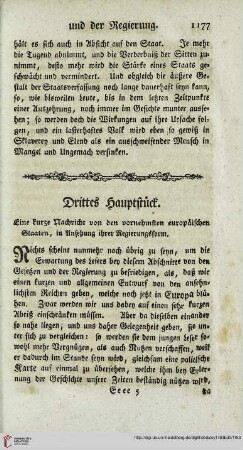 und der Regierung. 1177
hält es sich auch in Absicht auf den Staat. Je mehr
die Tugend abnimmt, und die Verderbniß der Sitten zu-
nimmt, desto mehr wird die Stärke eines Staats ge-
schwächt und vermindert. Und obgleich die äußere Ge-
stalt der Staatsverfassung noch lange dauerhaft seyn kann,
so, wie bisweilen heute, bis in dem letzten Zeitpunkte
einer Auszehrung, noch immer im Gesichte munter ausse-
hen; so werden doch die Wirkungen auf ihre Ursache fol-
gen, und ein lasterhaftes Volk wird eben so gewiß in
Sklaverey und Elend als ein ausschweifender Mensch in
Mangel und Ungemach versinken.
Drittes Hauptstück.
Eine kurze Nachricht von den vornehmsten europäischen
Staaten, in Ansehung ihrer Regierungsform.
Nichts scheint nunmehr noch übrig zu seyn, um die
Erwartung des Lesers bey diesem Abschnitte von den
Gesetzen und der Regierung zu befriedigen, als, daß wir
einen kurzen und allgemeinen Entwurf von den ansehn-
lichsten Reichen geben, welche noch jetzt in Europa blü-
hen. Zwar werden wir uns dabey auf einen sehr kurzen
Abriß einschränken müssen. Aber da dieselben einander
so nahe liegen, und uns daher Gelegenheit geben, sie un-
ter sich zu vergleichen: so werden sie dem jungen Leser so-
wohl mehr Vergnügen, als auch Nutzen verschaffen, weil
er dadurch im Stande seyn wird, gleichsam eine politische
Karte auf einmal zu übersehen, welche ihm bey Erler-
nung der Geschichte unser Zeiten beständig nützen wird,
Eeee 5 da